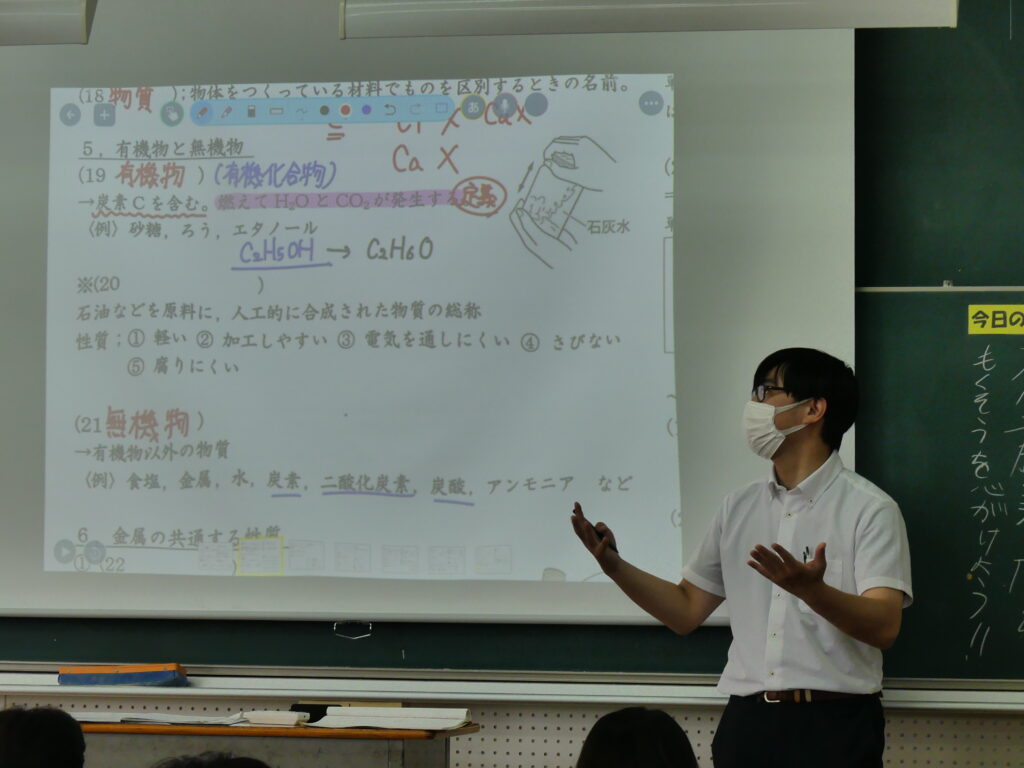 (18 物質 );物体をつくっている材料でものを区別するときの名前。
Ca X
Ca X
5,有機物と無機物
(19 有機物 ) (有機化合物)
→炭素Cを含む。燃えてH₂OとCO₂が発生する 定義
石灰水
〈例〉砂糖,ろう,エタノール
C₂H₅OH → C₂H₆O
※(20 )
石油などを原料に,人工的に合成された物質の総称
性質;① 軽い ② 加工しやすい ③ 電気を通しにくい ④ さびない
⑤ 腐りにくい
(21 無機物 )
→有機物以外の物質
〈例〉食塩,金属,水,炭素,二酸化炭素,炭酸,アンモニア など
6 金属の共通する性質
①(22 )
今日の
もくそうを心がけよう!!